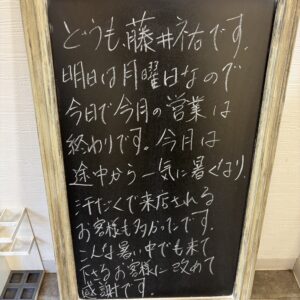 どうも、藤井祐です。
明日は月曜日なので
今日で今月の営業は
終わりです。今月は
途中から一気に暑くなり、
汗だくで来店される
お客様も多かったです。
こんな暑い中でも来て
下さるお客様に改めて
感謝です。